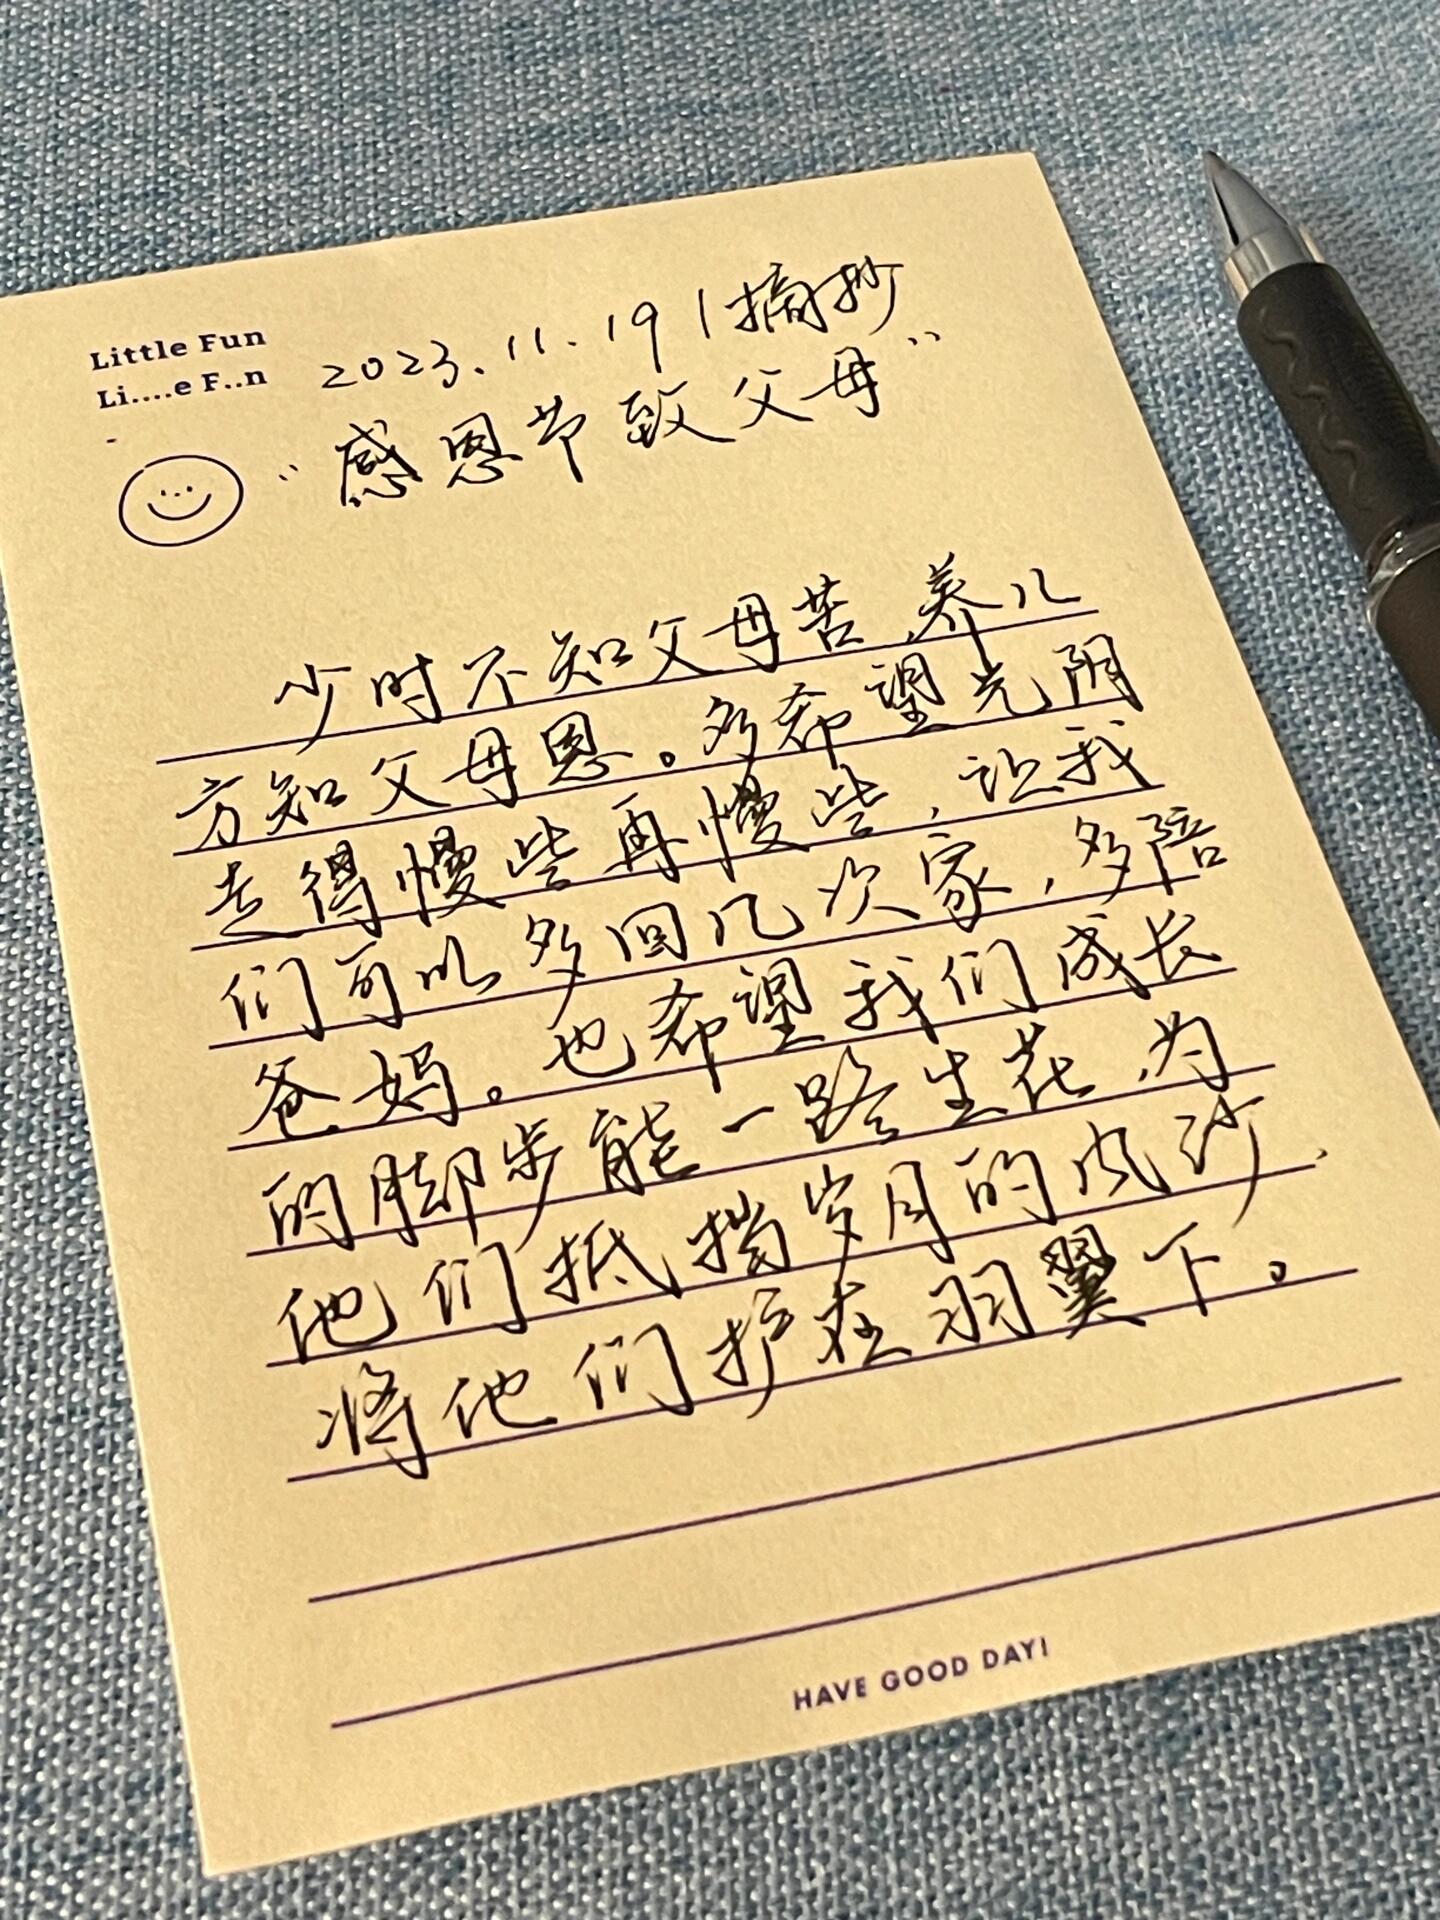 Little Fun
Li....e F..n
-
2023.11.19 | 摘抄
“感恩节致父母”
少时不知父母苦,养儿
方知父母恩。多希望光阴
走得慢些再慢些,让我
们可以多回几次家,多陪
爸妈。也希望我们成长
的脚步能一路生花,为
他们抵挡岁月的风沙,
将他们护在羽翼下。
HAVE GOOD DAY!